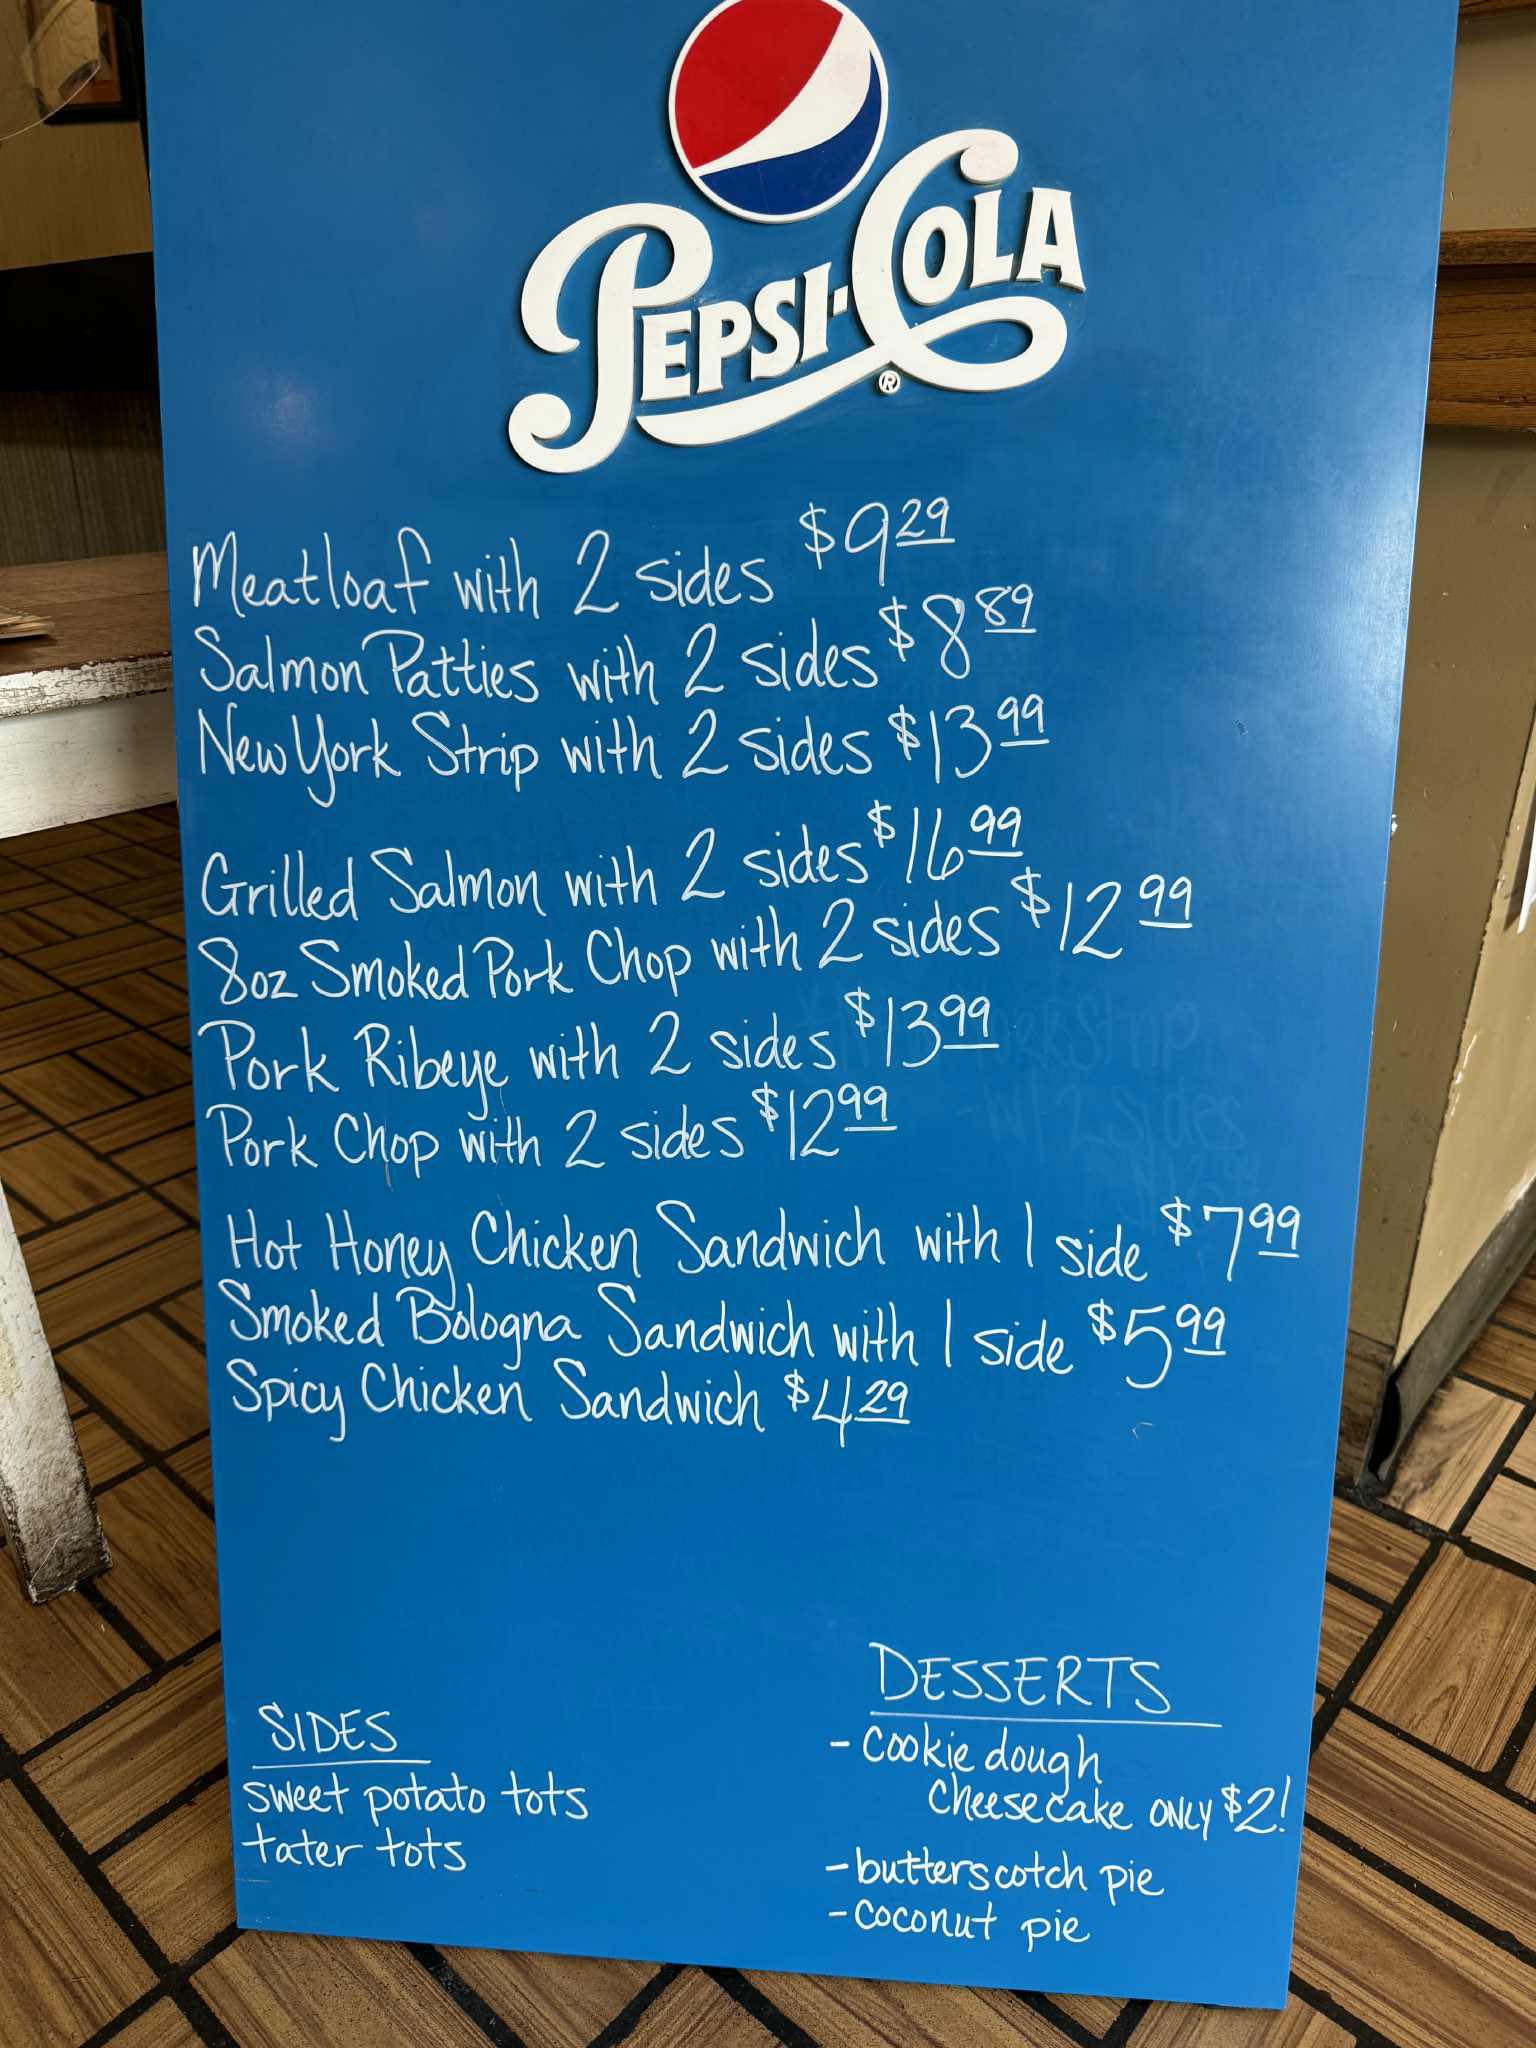 PEPSI-COLA
®
Meatloaf with 2 sides $9 29
Salmon Patties with 2 sides $8 89
New York Strip with 2 sides $13 99
Grilled Salmon with 2 sides $16 99
8oz Smoked Pork Chop with 2 sides $12 99
Pork Ribeye with 2 sides $13 99
Pork Chop with 2 sides $12 99
Hot Honey Chicken Sandwich with 1 side $7 99
Smoked Bologna Sandwich with 1 side $5 99
Spicy Chicken Sandwich $4 29
SIDES
sweet potato tots
tater tots
DESSERTS
- cookie dough
cheesecake ONLY $2!
- butterscotch pie
- coconut pie